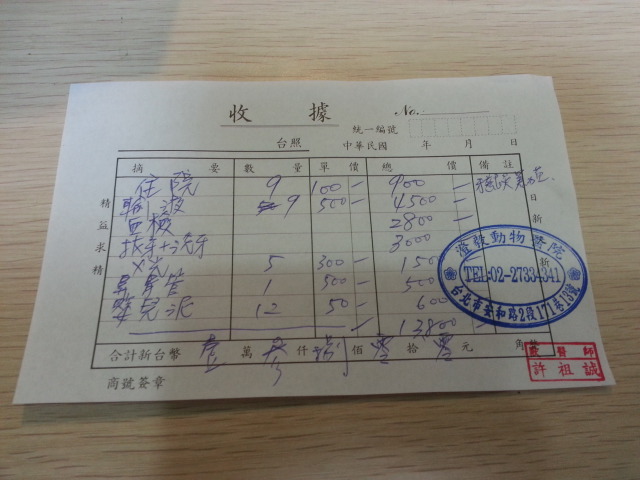 收 據 No.
統一編號
台照 中華民國 年 月 日
摘 要 數 量 單 價 總 價 備 註
住院 9 100 900
輸液 9 500 4500
血檢 2800
拔牙+洗牙 3000
X光 5 300 150
鼻胃管 1 500 500
嬰兒泥 12 50 600
13800
精益求精
日新
合計新台幣 壹 萬 參 仟 捌 佰 零 拾 零 元 角
商號簽章
澄發動物醫院
TEL:02-2733-4341
台北市安和路2段171巷13號
獸醫師
許祖誠